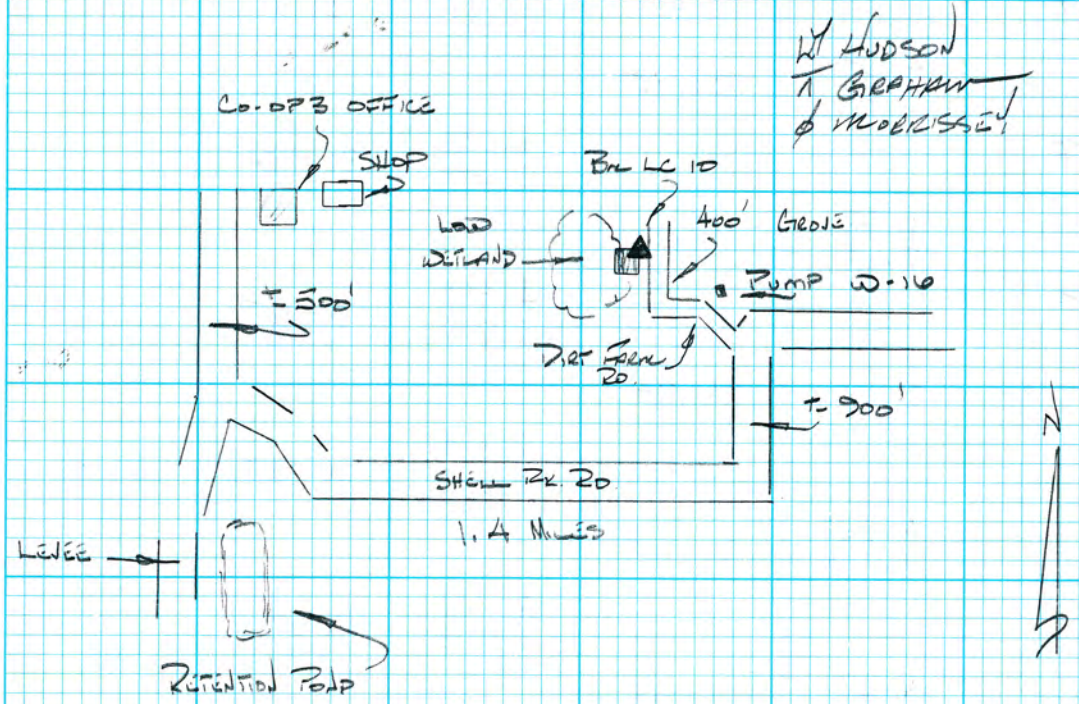 HUDSON
GRAHAM
MORRISSEY
CO-OP 3 OFFICE
SHOP
BM LC 10
LOW
WETLAND
400' GROVE
PUMP W-16
± 500'
DIRT FARM
RD.
± 900'
N
SHELL RK. RD
1.4 MILES
LEVEE
RETENTION POND